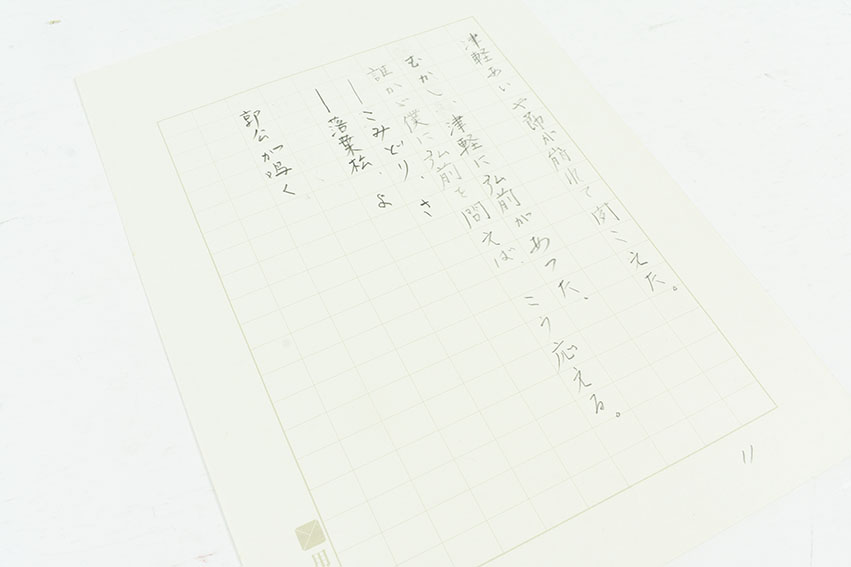 津軽あいや節が崩れて聞こえた。
むかし、津軽に弘前があった、
誰かが僕に弘前を問えば、こう応える。
―こみどり、さ
―落葉松 よ
郭公が鳴く
11